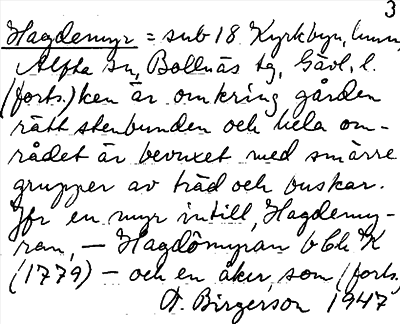 3
Hagdemyr = sub 18 Kyrkbyn, hmn,
Alfta sn, Bollnäs tg, Gävl. l.
(forts.) ken är omkring gården
rätt stenbunden och hela om-
rådet är bevuxet med smärre
grupper av träd och buskar.
Jfr en myr intill, Hagdemy-
ran, — Hagdömyran b Ch K
(1779) — och en åker, som (forts.
A. Birgerson 1947